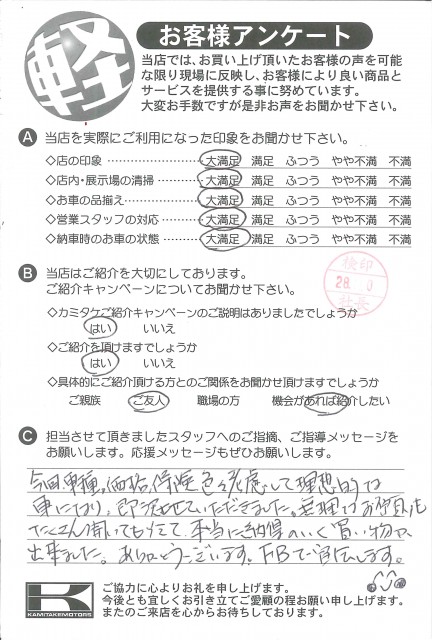 軽
お客様アンケート
当店では、お買い上げ頂いたお客様の声を可能
な限り現場に反映し、お客様により良い商品と
サービスを提供する事に努めています。
大変お手数ですが是非お声をお聞かせ下さい。
A 当店を実際にご利用になった印象をお聞かせ下さい。
◇店の印象 ………………… 大満足 満足 ふつう やや不満 不満
◇店内・展示場の清掃 ……… 大満足 満足 ふつう やや不満 不満
◇お車の品揃え ……………… 大満足 満足 ふつう やや不満 不満
◇営業スタッフの対応 ……… 大満足 満足 ふつう やや不満 不満
◇納車時のお車の状態 ……… 大満足 満足 ふつう やや不満 不満
B 当店はご紹介を大切にしております。
ご紹介キャンペーンについてお聞かせ下さい。
検印
28.
社長
◇カミタケご紹介キャンペーンのご説明はありましたでしょうか
はい いいえ
◇ご紹介を頂けますでしょうか
はい いいえ
◇具体的にご紹介頂ける方とのご関係をお聞かせ頂けますでしょうか
ご親族 ご友人 職場の方 機会があれば紹介したい
C 担当させて頂きましたスタッフへのご指摘、ご指導メッセージを
お願いします。応援メッセージもぜひお願します。
今回、車種、価格、保険、色を考慮して理想的な
車になり、即決させていただきました。無理なお願いも
たくさん聞いてもらえて、本当に納得のいく買い物が
出来ました。ありがとうございます。FBで宣伝します。
K
KAMITAKEMOTORS
ご協力に心よりお礼を申し上げます。
今後とも宜しくお引き立てご愛顧の程お願い申し上げます。
またのご来店を心からお待ちしております。